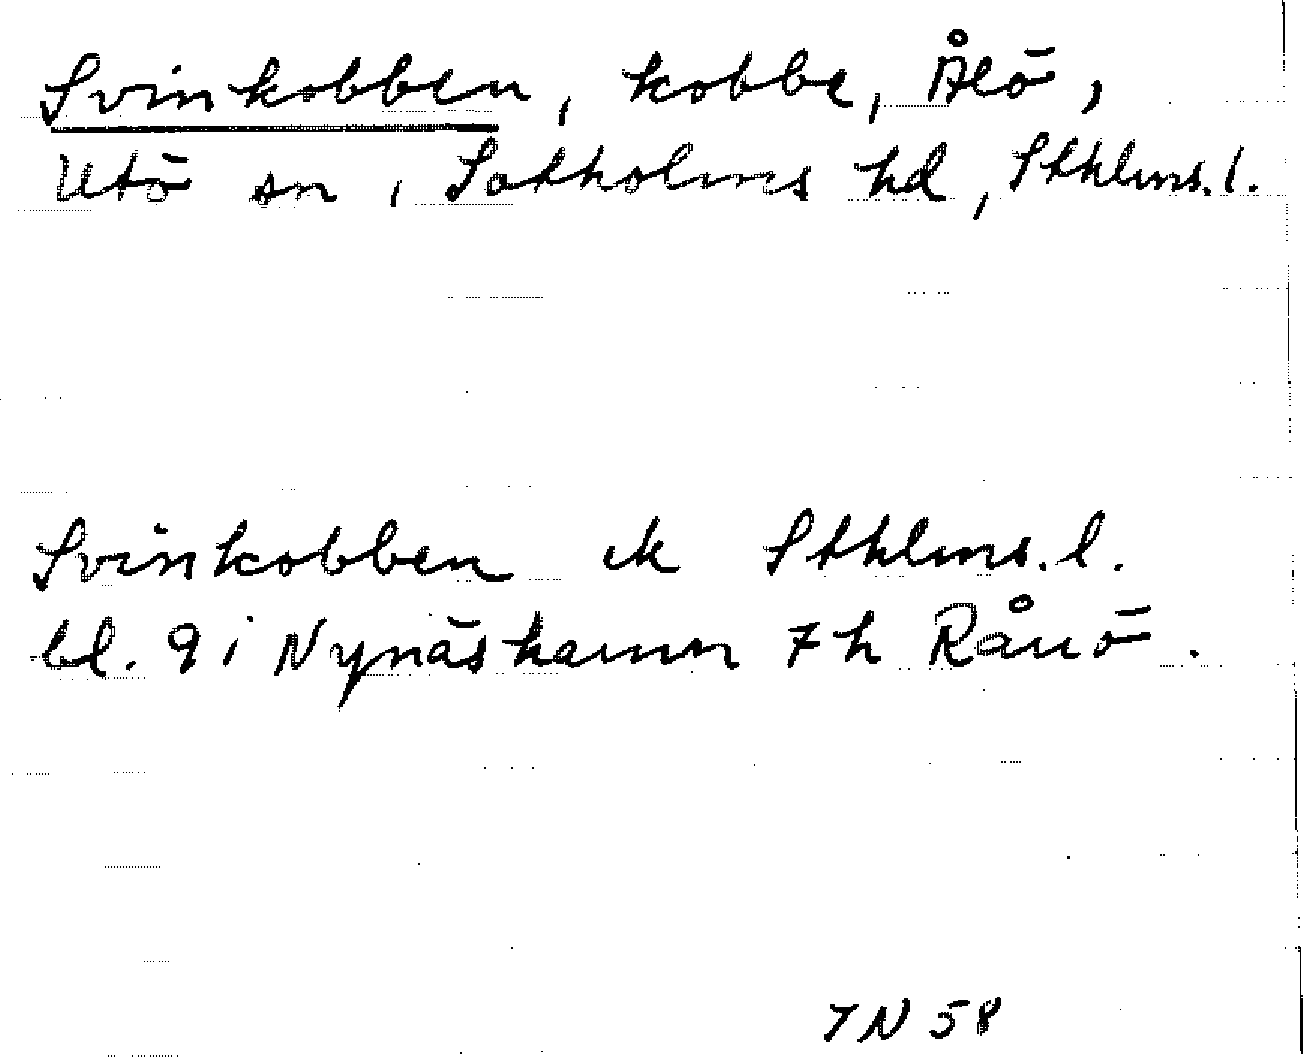 Svinkobben, kobbe, Ålö,
Utö sn, Sotholms hd, Sthlms. l.
Svinkobben ek Sthlms. l.
bl. 9 i Nynäshamn 7 h Rånö.
TN 58